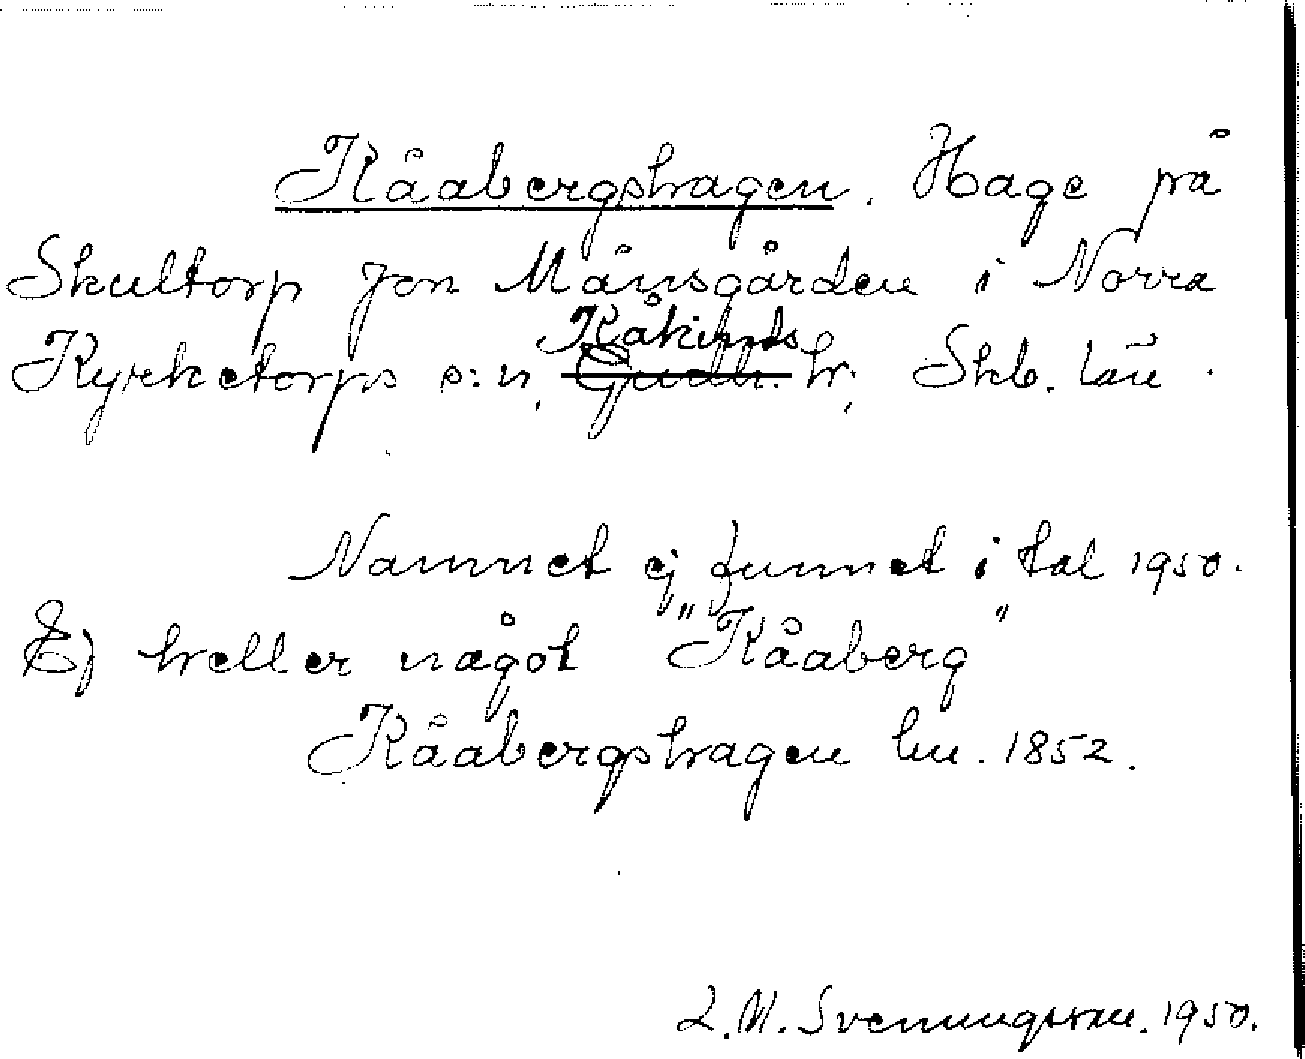 Kåabergshagen. Hage på
Skultorp Jon Månsgården i Norra
Kåkinds
Kyrketorps s:n, Gudh. hr, Skb. län.
Namnet ej funnet i tal 1950.
Ej heller något "Kåaberg"
Kåabergshagen lm. 1852.
L. M. Svenungsson. 1950.